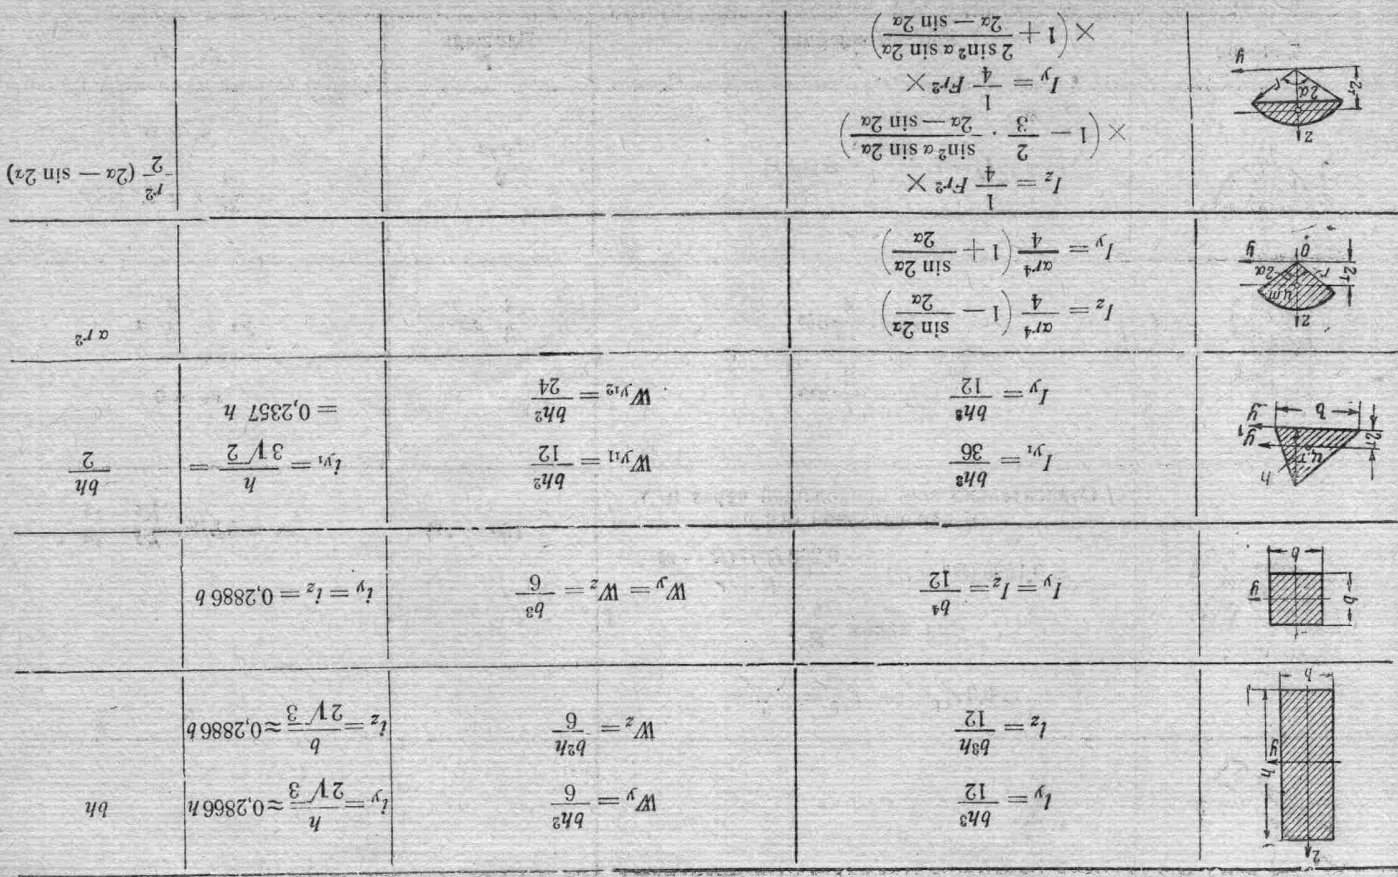 z
h
y
b
I_y = bh³/12
I_z = b³h/12
W_y = bh²/6
W_z = b²h/6
i_y = h/2√3 ≈ 0,2866 h
i_z = b/2√3 ≈ 0,2886 b
bh
b
y
b
I_y = I_z = b⁴/12
W_y = W_z = b³/6
i_y = i_z = 0,2886 b
h
ц.т
y₁
y
b
I_y₁ = bh³/36
I_y = bh³/12
W_y₁₁ = bh²/12
W_y₁₂ = bh²/24
i_y₁ = h/3√2 =
= 0,2357 h
bh/2
z
ц.т
r
2α
O
y
I_z = αr⁴/4 (1 − sin 2α/2α)
I_y = αr⁴/4 (1 + sin 2α/2α)
α r²
z
r
2α
y
I_z = 1/4 Fr² ×
× (1 − 2/3 · sin² α sin 2α/2α — sin 2α)
I_y = 1/4 Fr² ×
× (1 + 2 sin² α sin 2α/2α — sin 2α)
r²/2 (2α — sin 2α)